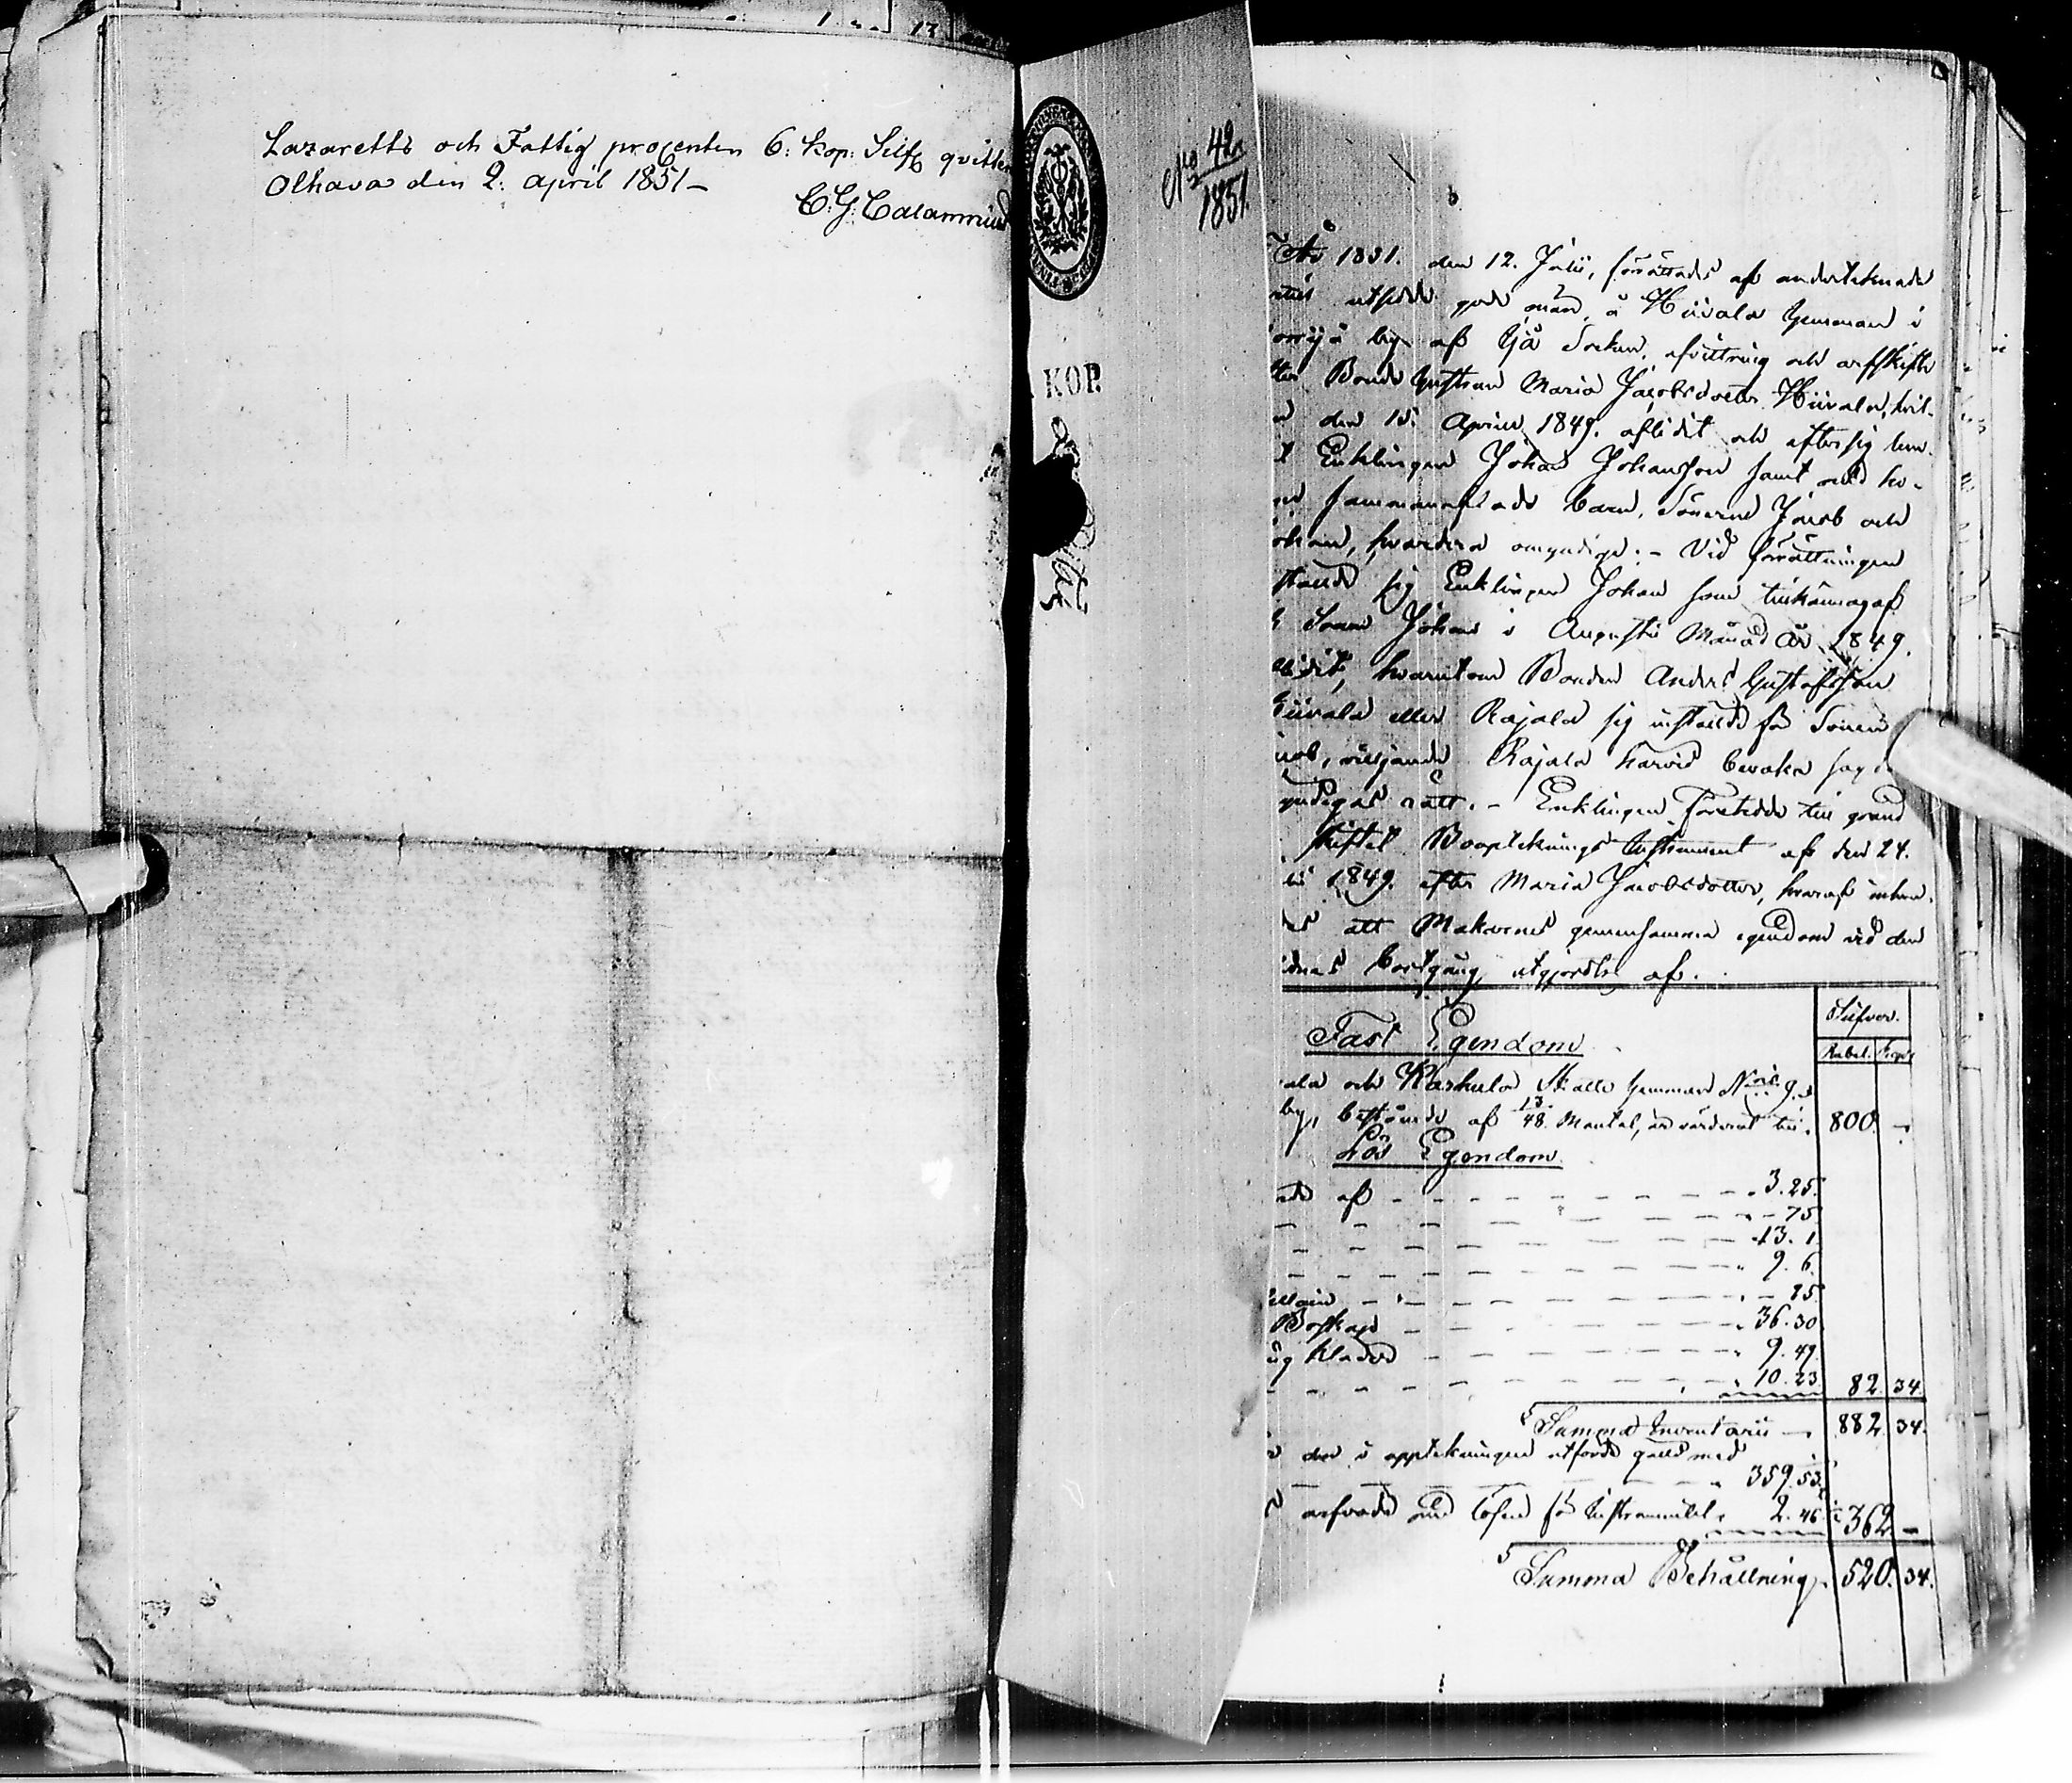 Lazaretts och Fattig procenten 6: kop: Silf qvitte
Olhava den 2: april 1851_
C. G. Calamnius
No 42
1851.
KOP.
År 1851. den 12. Julii, förrättade af undertecknade
utsedde gode män, å Hiivala hemman i
by af Ijå Socken, afvittring och arfskifte
Bonde hustrun Maria Jacobsdotter Hiivala, hvil-
den 15. Aprill 1849. aflidit och efter sig lem-
Enklingen Johan Johansson samt med ho-
sammanaflade barn, Sönerne Jacob och
ohan, hvardera omyndige. - Vid förrättningen
stälde sig Enklingen Johan som tillkännagaf
Sonen Johan i Augusti Månad år 1849.
hvarutom Bonden Anders Gustafsson
Hiivala eller Rajala sig instälde för Sonen
cob, viljande Rajala härvid bevaka
yndigas rätt. - Enklingen företedde till grund
skiftet Bouptecknings Instrument af den 24.
1849. efter Maria Jacobsdotter, hvaraf inhem-
att Makarnes gemensamma egendom vid den
bortgång, utgjordes af.
Silfver.
Rubel. Kop.
Fast Egendom
ala och Karhula Skatte hemman N
by, bestående af 13/48. Mantal, är värderat till. 800. -
Lös Egendom
af - 3.25.
75
13. 1
9. 6.
15
Boskap - 36.30
kläder - 9.49
10.23 82 34.
Summa Inventarii - 882 34.
den i uppteckningen utförde gäld med
359.53
arfvode och lösen för Instrumentet. 2.46 362 -
Summa Behållning. 520. 34.